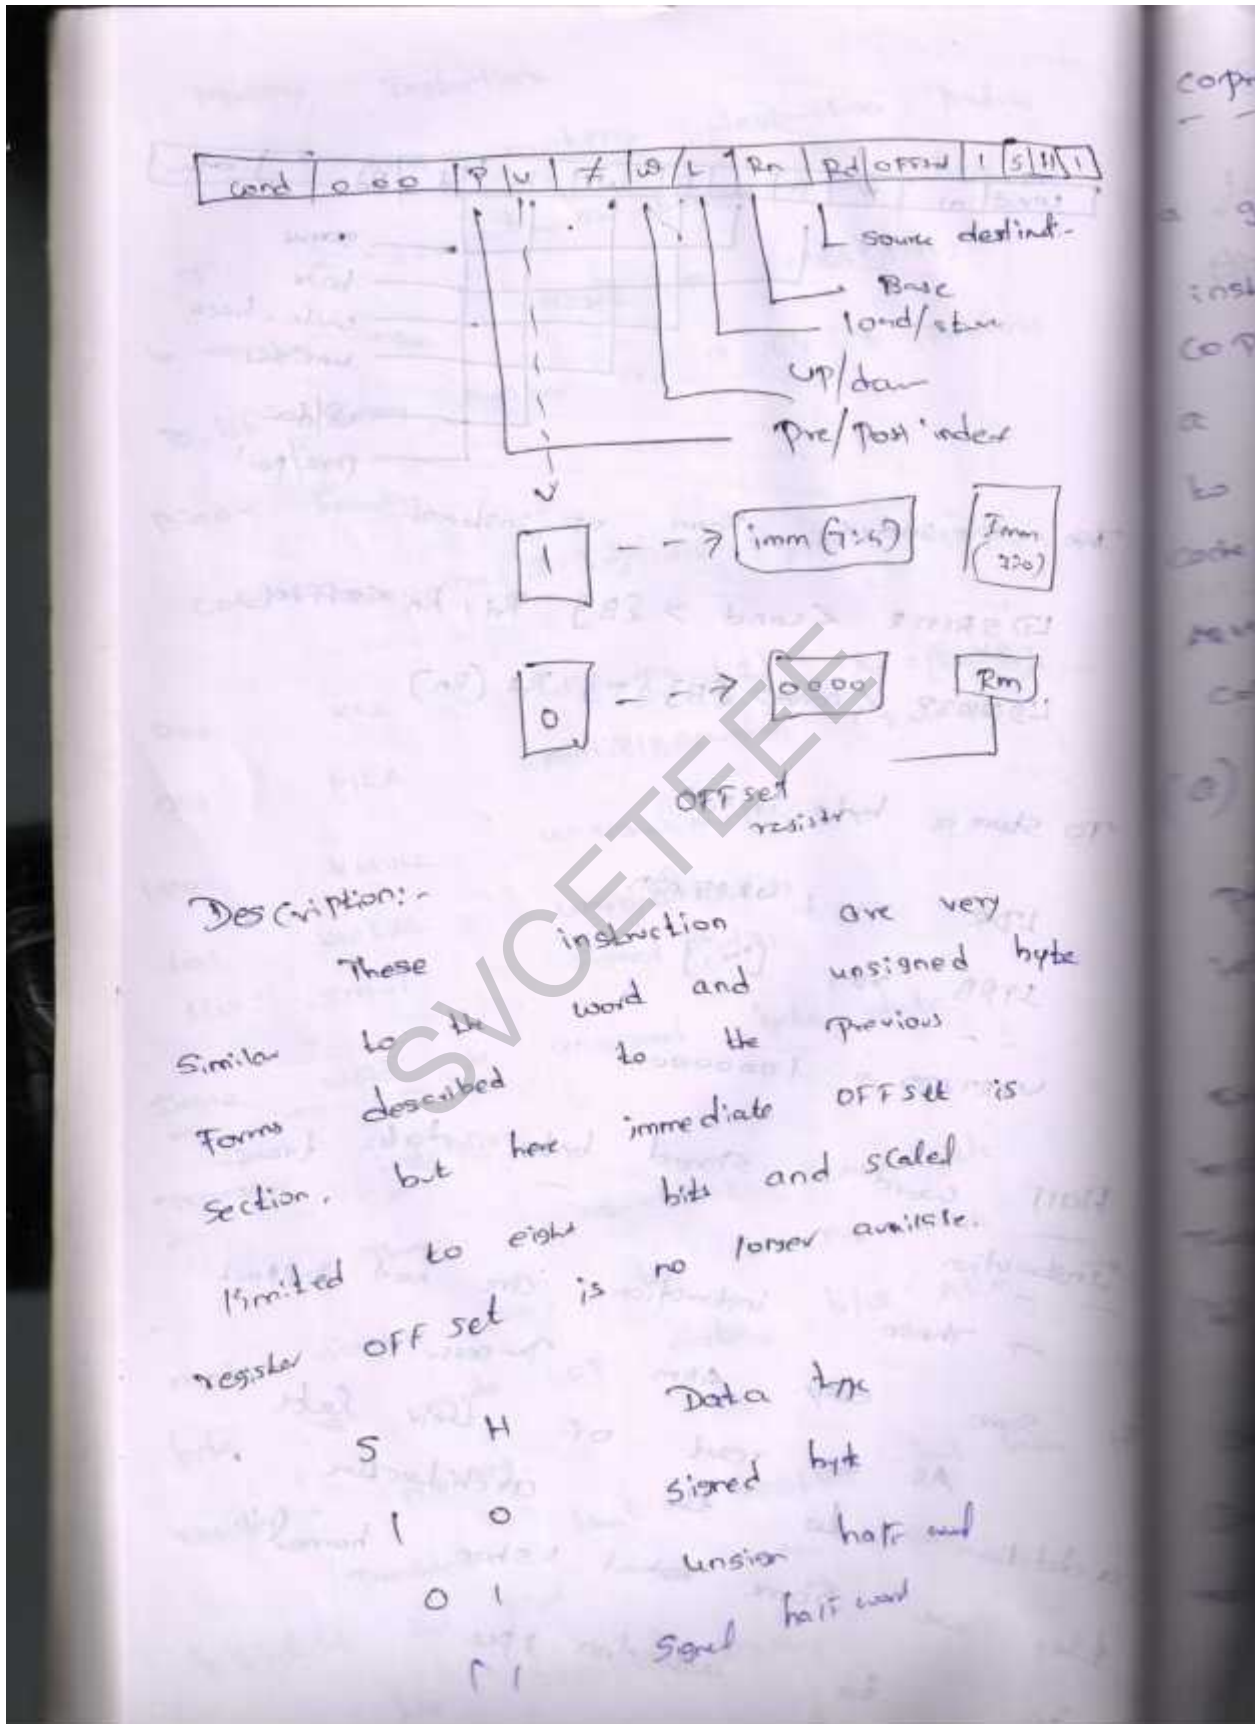 cond 0 0 0 P U W L Rn Rd OFFset 1 S H 1
source destinat:-
Base
load/store
UP/down
Pre/Post index
1 imm (7:4) Imm
0 0000 Rm
OFFset
registr
Description:-
These instruction are very
similar to the word and unsigned byte
Forms described to the previous
section. but here immediate OFFset is
limited to eight bits and scaled
register OFF set is no longer available.
S H Data type
1 0 signed byte
0 1 unsign half word
1 1 signed half word
SVCETEEE